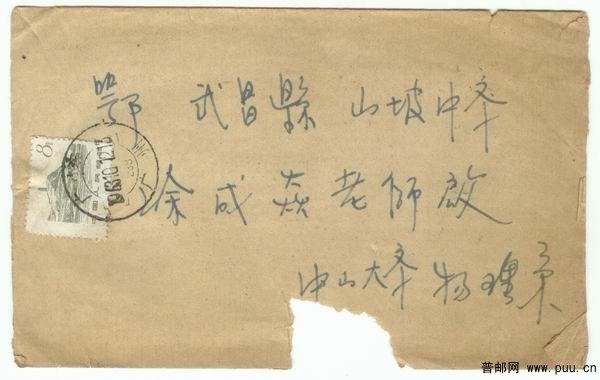 鄂 武昌縣 山坡中学
徐成焱老師啟
中山大学物理系
8
普邮网 www.puu.cn